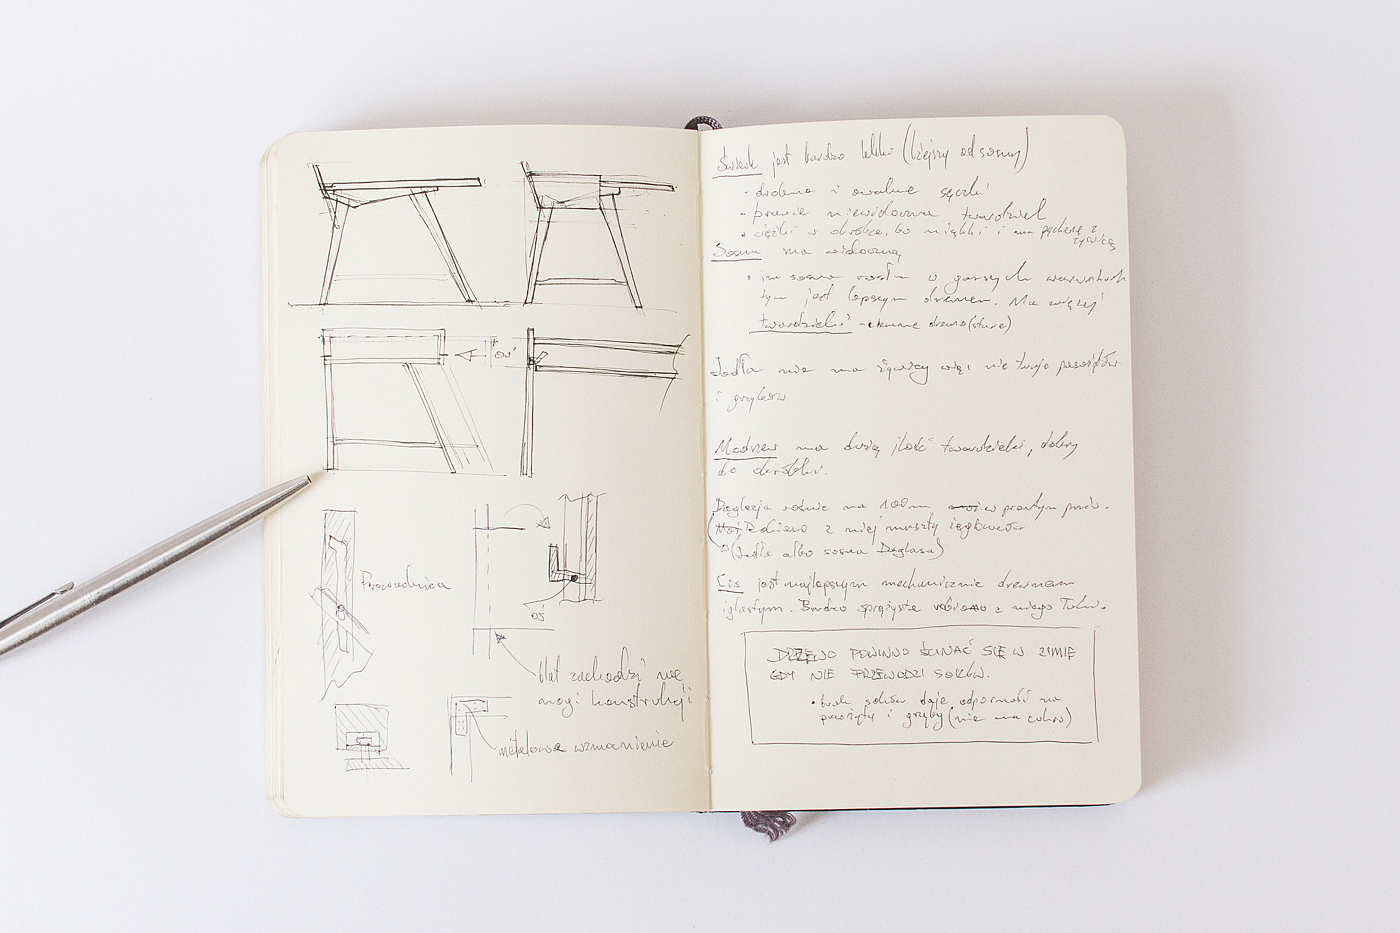 oś
Prowadnica
oś
blat zachodzi na
nogi konstrukcji
metalowe wzmocnienie
Świerk jest bardzo lekki (lżejszy od sosny)
- drobne i owalne sęczki
• prawie niewidoczna twardziel
• ciężki w obróbce, bo miękki i ma pęcherze z
żywicą
Sosna ma widoczną
• im sosna rosła w gorszych warunkach
tym jest lepszym drewnem. Ma więcej
twardzieli - ciemne drewno (stare)
Jodła nie ma żywicy więc nie truje pasożytów
i grzybów
Modrzew ma dużą ilość twardzieli, dobry
do obróbki.
Daglezja rośnie na 100m w prostym
z niej maszty
(Jodła albo sosna Douglasa)
Cis jest najlepszym mechanicznie drewnem
iglastym. Bardzo sprężyste robiono z niego łuki.
DRZEWO POWINNO ŚCINAĆ SIĘ W ZIMIE
GDY NIE PRZEWODZI SOKÓW.
• brak soków daje odporność na
pasożyty i grzyby (nie ma cukru)